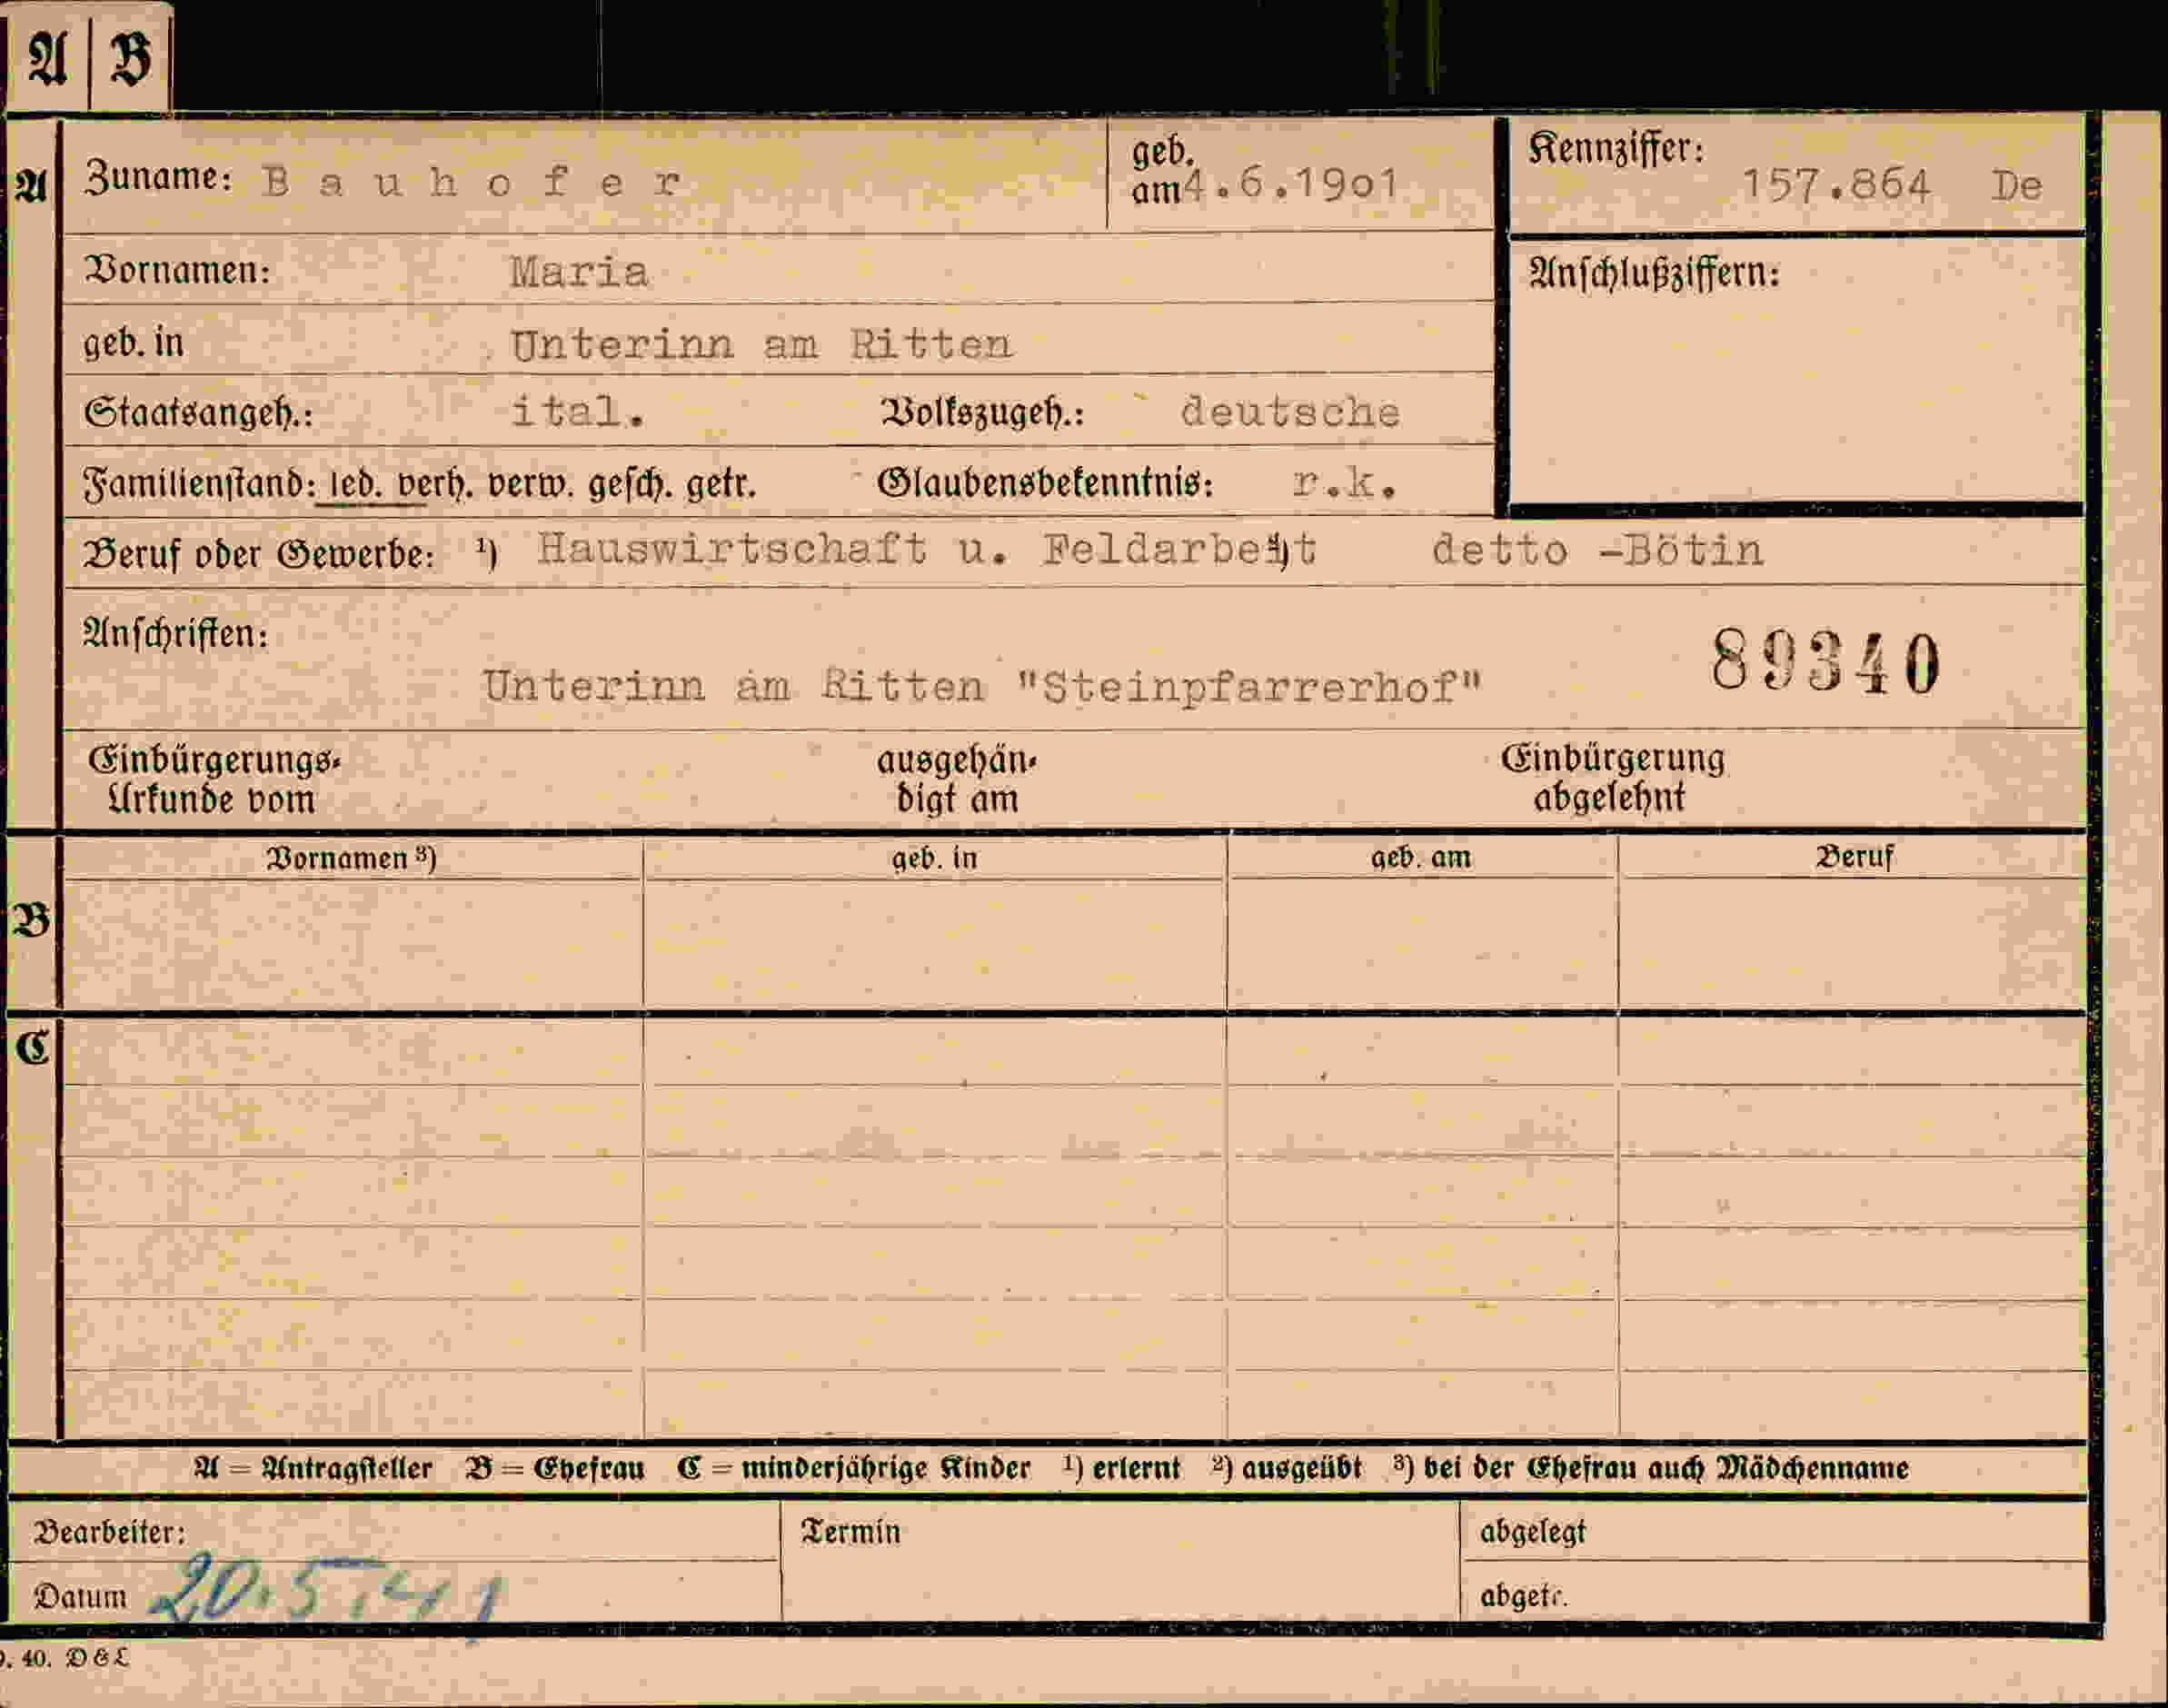 A B
A Zuname: Bauhofer geb. am 4.6.19o1 Kennziffer: 157.864 De
Vornamen: Maria Anschlußziffern:
geb. in Unterinn am Ritten
Staatsangeh.: ital. Volkszugeh.: deutsche
Familienstand: led. verh. verw. gesch. getr. Glaubensbekenntnis: r.k.
Beruf oder Gewerbe: ¹) Hauswirtschaft u. Feldarbeit detto -Bötin
Anschriften:
89340
Unterinn am Ritten "Steinpfarrerhof"
Einbürgerungs- ausgehän- Einbürgerung
Urkunde vom digt am abgelehnt
Vornamen ³) geb. in geb. am Beruf
B
C
A = Antragsteller B = Ehefrau C = minderjährige Kinder ¹) erlernt ²) ausgeübt ³) bei der Ehefrau auch Mädchenname
Bearbeiter: Termin abgelegt
Datum 20.5.41 abgetr.
40. D & L